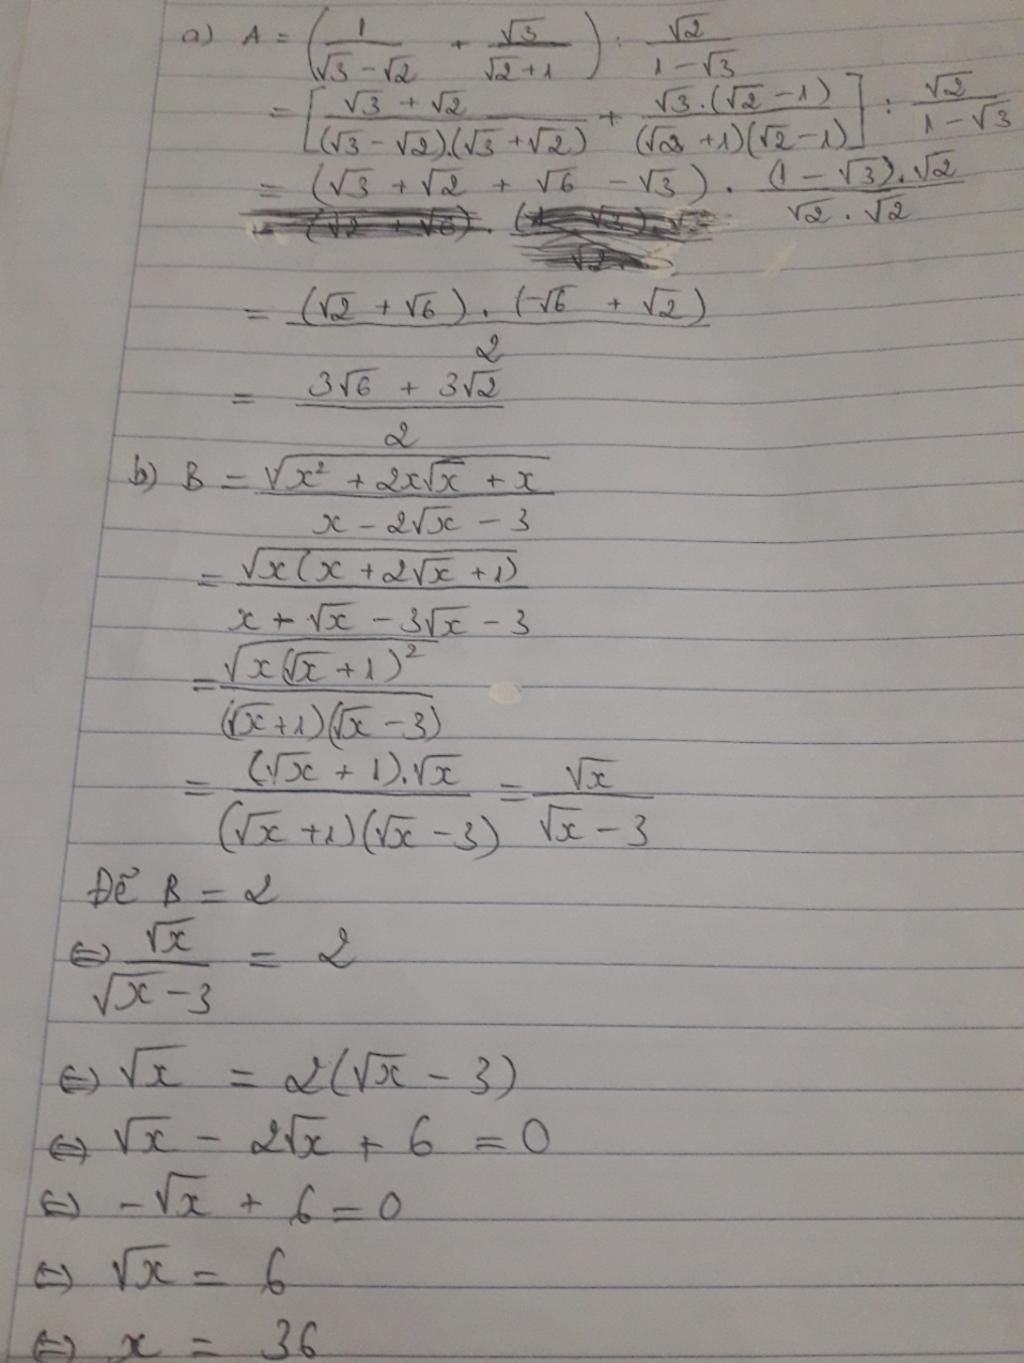 a) A = (1/(√3 − √2) + √3/(√2 + 1)) : √2/(1 − √3)
= [(√3 + √2)/((√3 − √2).(√3 + √2)) + √3.(√2 − 1)/((√2 + 1)(√2 − 1))] : √2/(1 − √3)
= (√3 + √2 + √6 − √3) . (1 − √3).√2/(√2 . √2)
= (√2 + √6) . (−√6 + √2)/2
= (3√6 + 3√2)/2
b) B = √(x² + 2x√x + x)/(x − 2√x − 3)
= √(x(x + 2√x + 1))/(x + √x − 3√x − 3)
= √(x(√x + 1)²)/((√x+1)(√x − 3))
= (√x + 1).√x/((√x + 1)(√x − 3)) = √x/(√x − 3)
Để B = 2
⇔ √x/(√x − 3) = 2
⇔ √x = 2(√x − 3)
⇔ √x − 2√x + 6 = 0
⇔ −√x + 6 = 0
⇔ √x = 6
⇔ x = 36